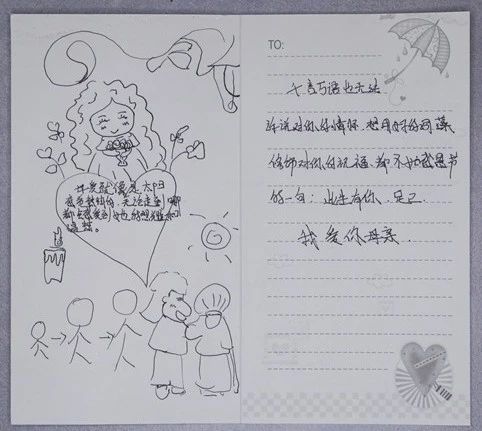 母爱就像是太阳
无论走到哪
都
温慰。
TO:
千言万语也无法
诉说对你的情怀,想用好的词藻
修饰对你的祝福,都不如感恩节
的一句:此生有你、足已
我爱你母亲.